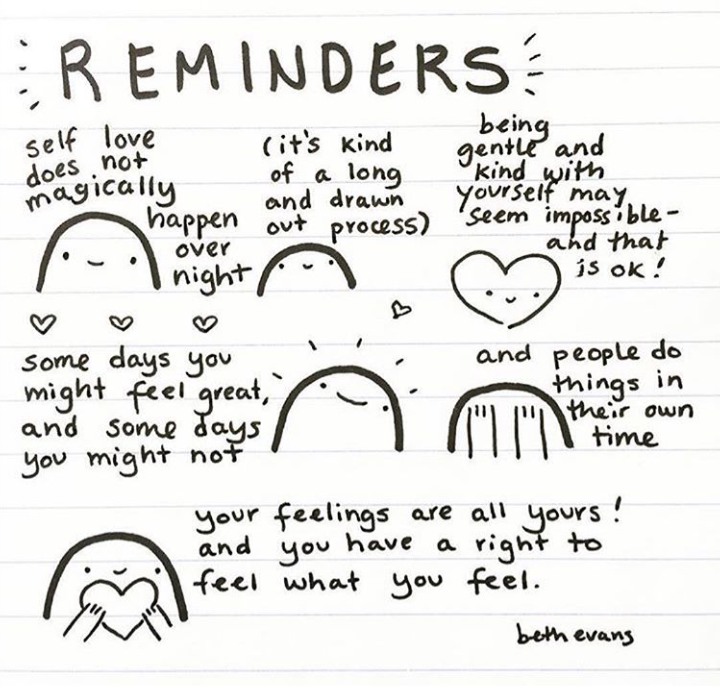 REMINDERS
self love
does not
magically
happen
over
night
(it's kind
of a long
and drawn
out process)
being
gentle and
kind with
yourself may
seem impossible-
and that
is ok!
some days you
might feel great,
and some days
you might not
and people do
things in
their own
time
your feelings are all yours!
and you have a right to
feel what you feel.
beth evans